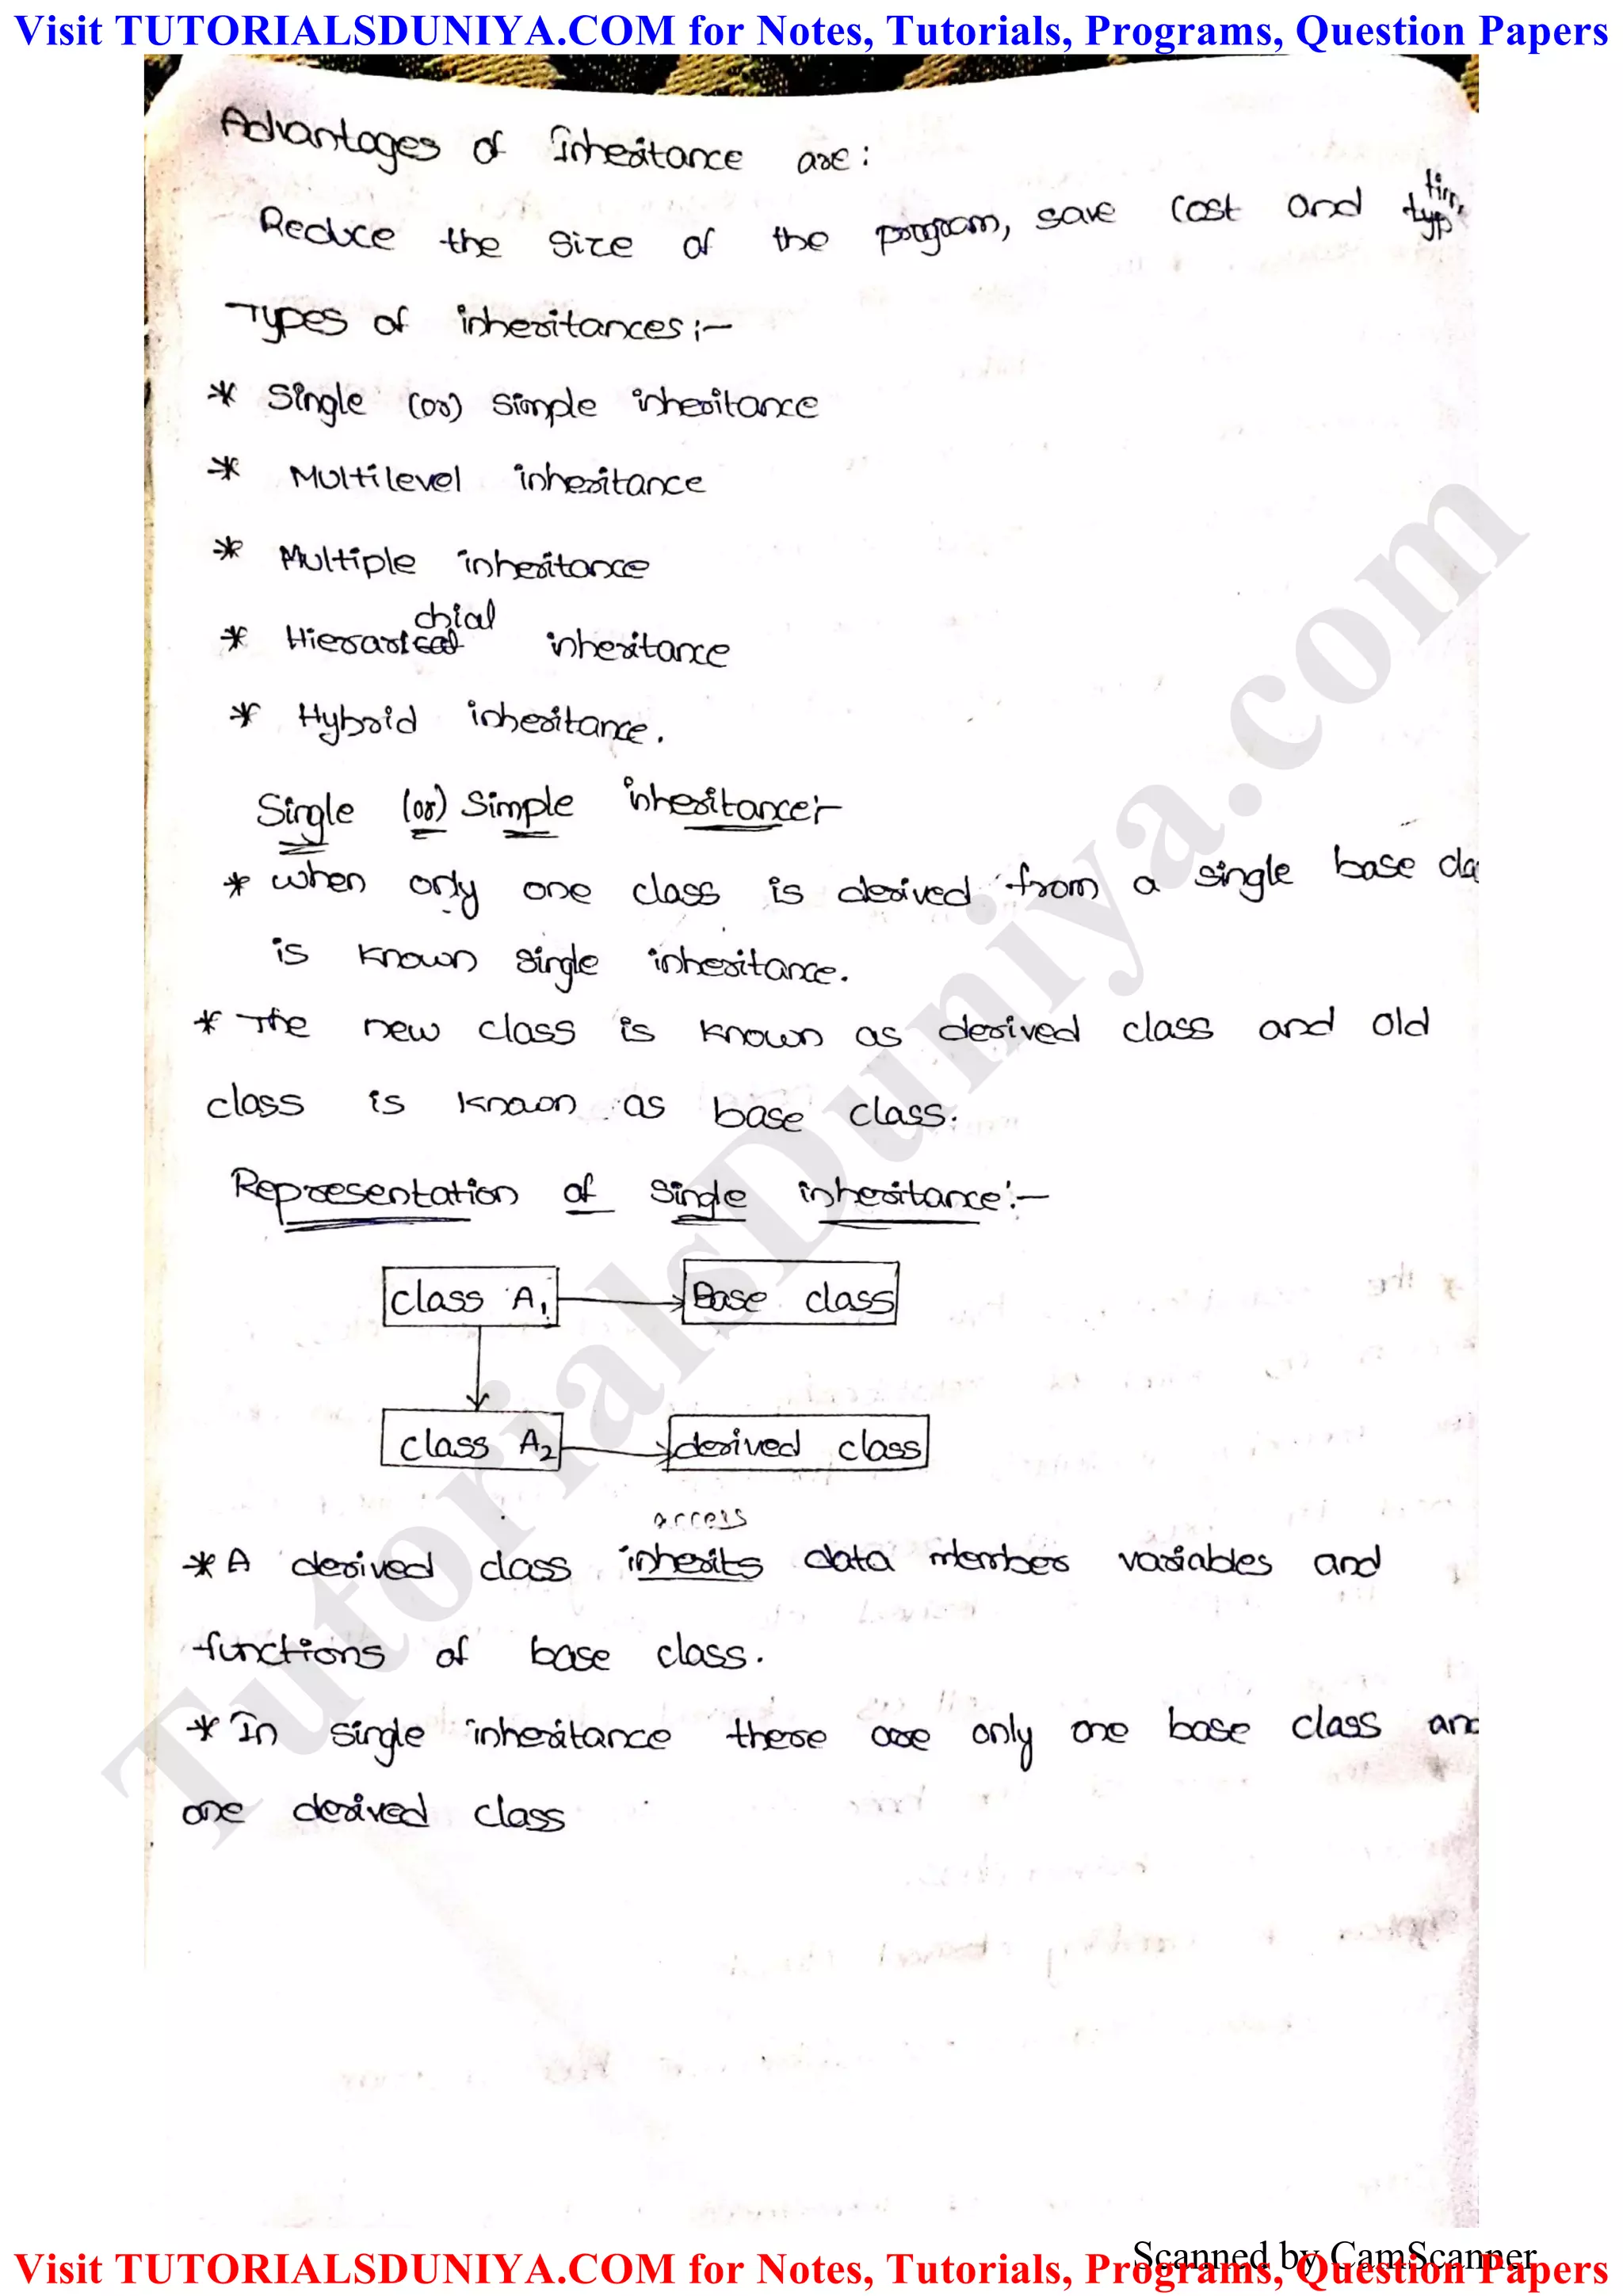 Visit TUTORIALSDUNIYA.COM for Notes, Tutorials, Programs, Question Papers
Advantages of Inheritance are:
Reduce the size of the program, save cost and
Types of inheritances:-
* Single (or) simple inheritance
* Multilevel inheritance
* Multiple inheritance
chial
* Hierarical inheritance
* Hybrid inheritance.
Single (or) Simple inheritance:-
* when only one class is derived from a single base cla
is known single inheritance.
* The new class is known as derived class and old
class is known as base class.
Representation of single inheritance:-
class A1 Base class
class A2 derived class
access
* A derived class inherits data member variables and
functions of base class.
* In single inheritance there are only one base class and
one derived class
TutorialsDuniya.com
Scanned by CamScanner
Visit TUTORIALSDUNIYA.COM for Notes, Tutorials, Programs, Question Papers